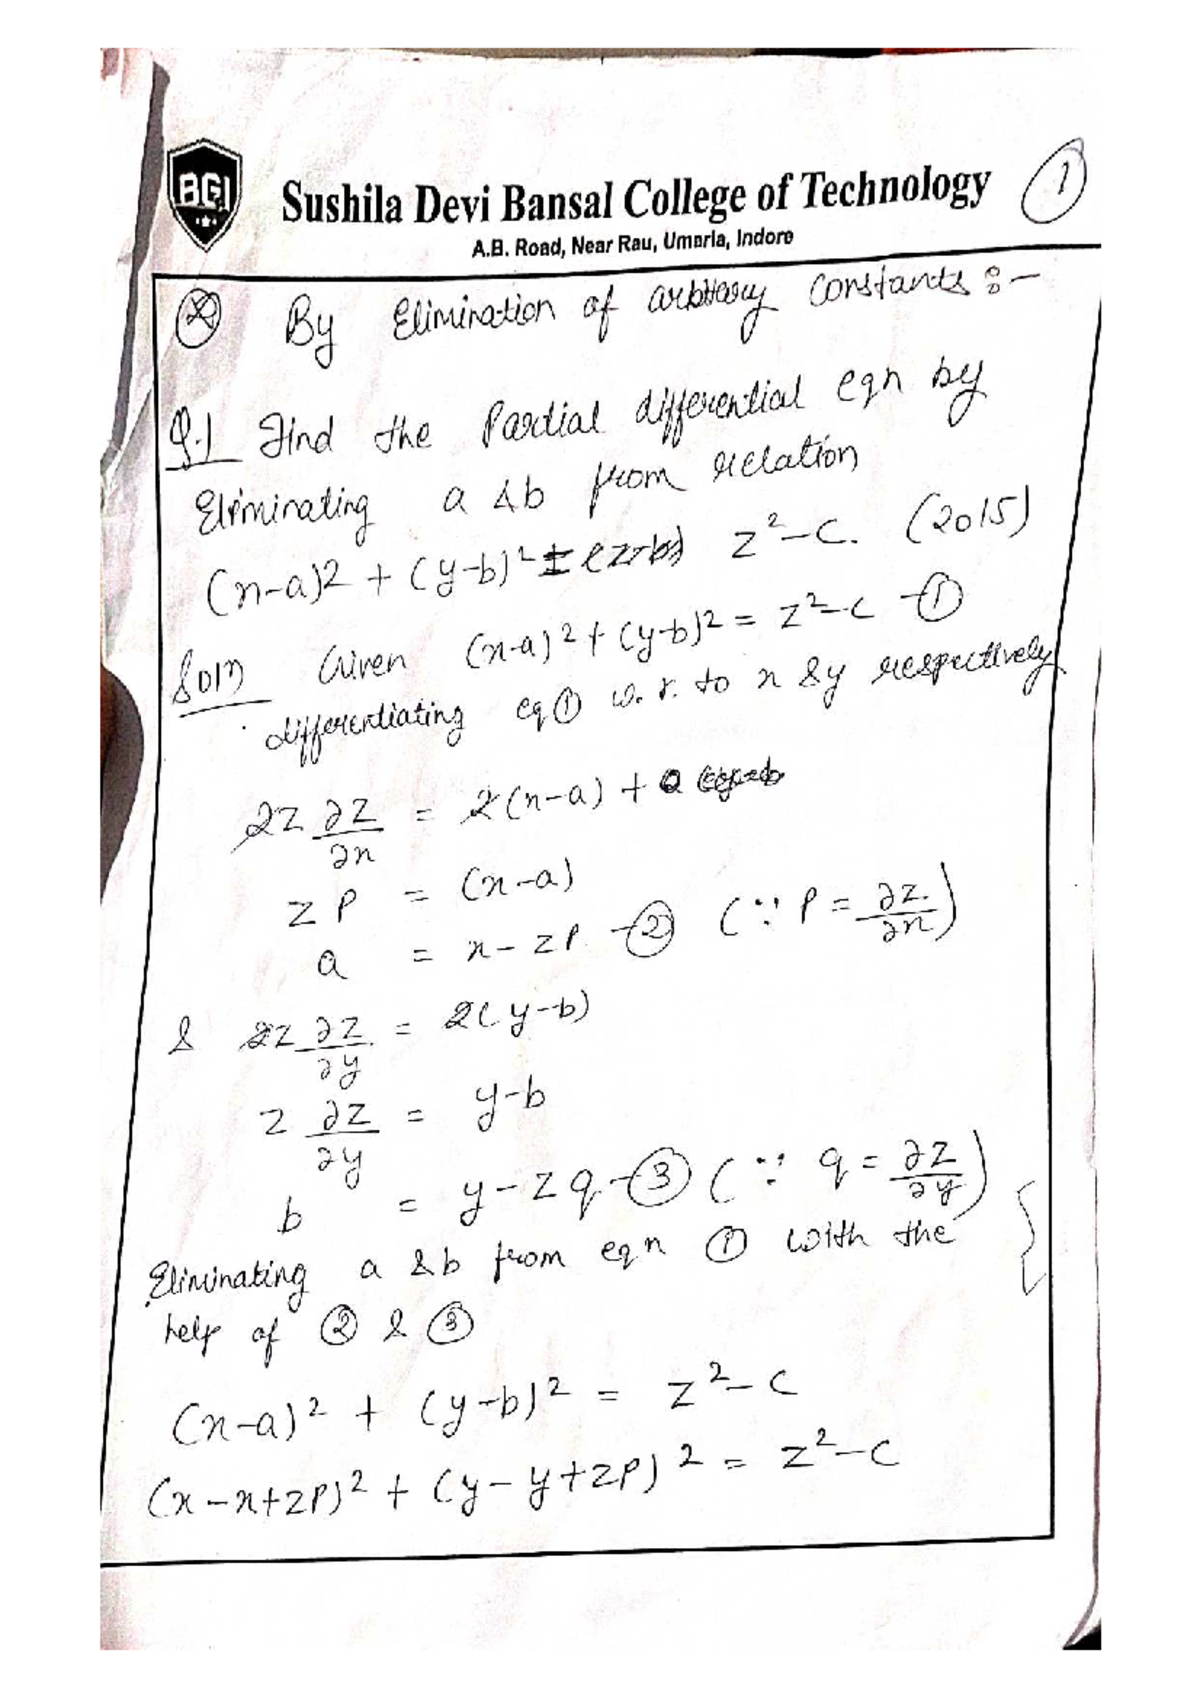 BGI
Sushila Devi Bansal College of Technology
1
A.B. Road, Near Rau, Umaria, Indore
By Elimination of arbitrary constants :-
Q.1 Find the Partial differential eqn by
Eliminating a & b from relation
(x-a)2 + (y-b)² = z²-c. (2015)
Soln Given (x-a)² + (y-b)² = z²-c -①
differentiating eq ① w.r. to x & y respectively
2z ∂z/∂x = 2(x-a) + 0
zP = (x-a)
a = x - zP -② (∵ P = ∂z/∂x)
& 2z ∂z/∂y = 2(y-b)
z ∂z/∂y = y-b
b = y - zq -③ (∵ q = ∂z/∂y)
Eliminating a & b from eqn ① with the
help of ② & ③
(x-a)² + (y-b)² = z²-c
(x-x+zP)² + (y-y+zP)² = z²-c